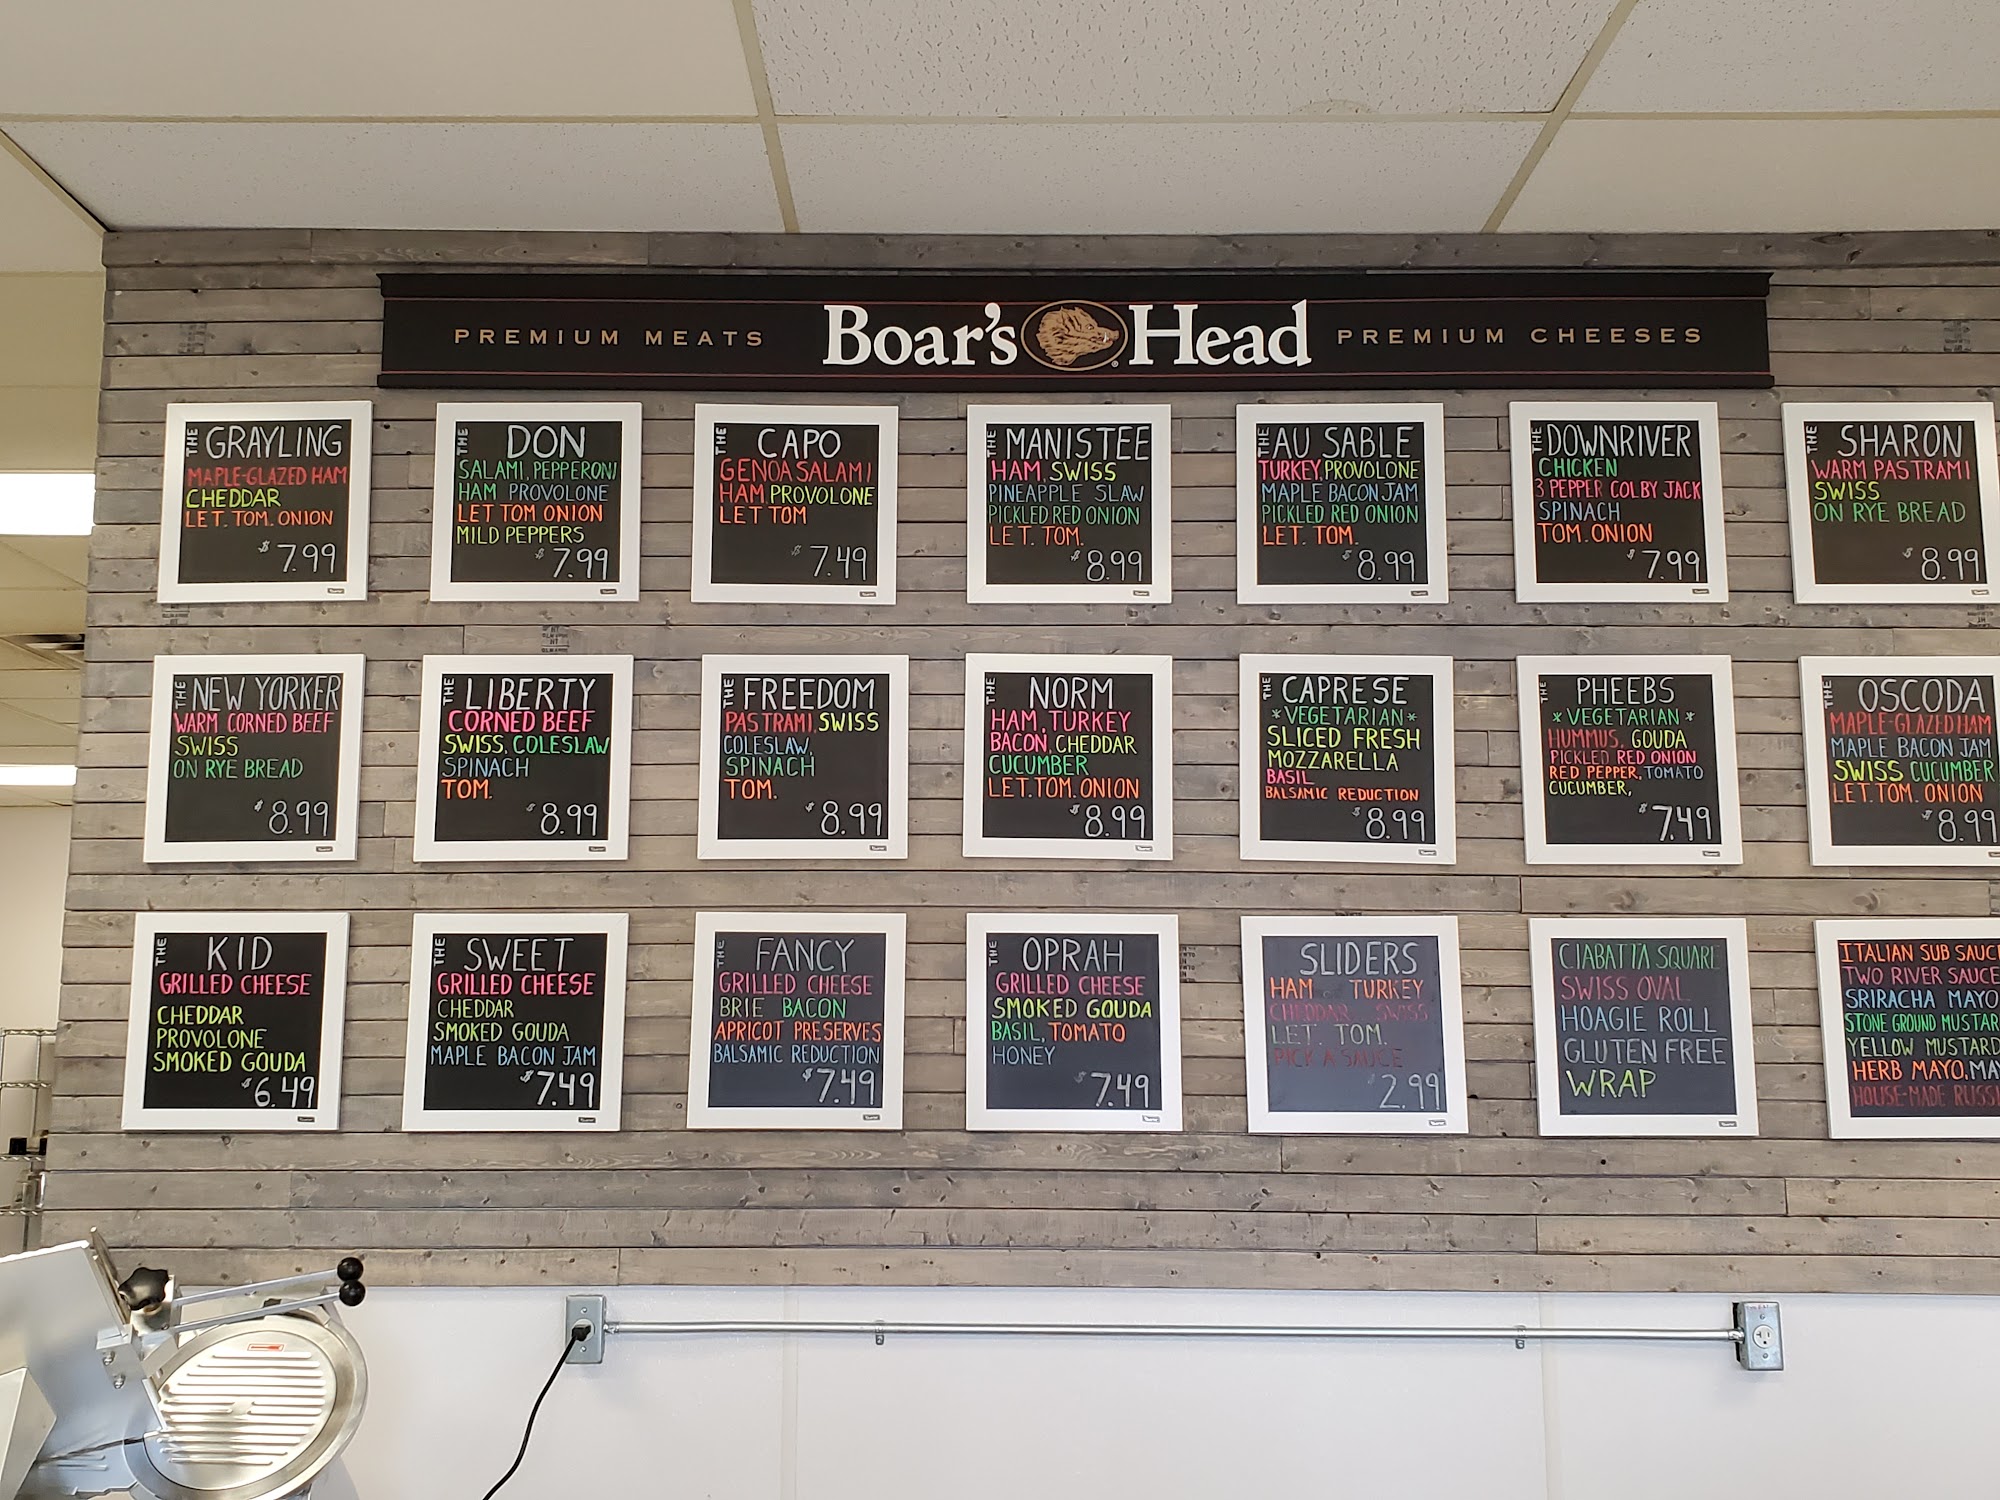 PREMIUM MEATS Boar's Head PREMIUM CHEESES
THE GRAYLING
MAPLE-GLAZED HAM
CHEDDAR
LET. TOM. ONION
$7.99
THE DON
SALAMI, PEPPERONI
HAM PROVOLONE
LET TOM ONION
MILD PEPPERS
$7.99
THE CAPO
GENOA SALAMI
HAM, PROVOLONE
LET TOM
$7.49
THE MANISTEE
HAM, SWISS
PINEAPPLE SLAW
PICKLED RED ONION
LET. TOM.
$8.99
THE AU SABLE
TURKEY, PROVOLONE
MAPLE BACON JAM
PICKLED RED ONION
LET. TOM.
$8.99
THE DOWNRIVER
CHICKEN
3 PEPPER COLBY JACK
SPINACH
TOM. ONION
$7.99
THE SHARON
WARM PASTRAMI
SWISS
ON RYE BREAD
$8.99
THE NEW YORKER
WARM CORNED BEEF
SWISS
ON RYE BREAD
$8.99
THE LIBERTY
CORNED BEEF
SWISS, COLESLAW
SPINACH
TOM.
$8.99
THE FREEDOM
PASTRAMI, SWISS
COLESLAW,
SPINACH
TOM.
$8.99
THE NORM
HAM, TURKEY
BACON, CHEDDAR
CUCUMBER
LET. TOM. ONION
$8.99
THE CAPRESE
*VEGETARIAN*
SLICED FRESH
MOZZARELLA
BASIL
BALSAMIC REDUCTION
$8.99
THE PHEEBS
*VEGETARIAN*
HUMMUS, GOUDA
PICKLED RED ONION
RED PEPPER, TOMATO
CUCUMBER,
$7.49
THE OSCODA
MAPLE-GLAZED HAM
MAPLE BACON JAM
SWISS CUCUMBER
LET. TOM. ONION
$8.99
THE KID
GRILLED CHEESE
CHEDDAR
PROVOLONE
SMOKED GOUDA
$6.49
THE SWEET
GRILLED CHEESE
CHEDDAR
SMOKED GOUDA
MAPLE BACON JAM
$7.49
THE FANCY
GRILLED CHEESE
BRIE BACON
APRICOT PRESERVES
BALSAMIC REDUCTION
$7.49
THE OPRAH
GRILLED CHEESE
SMOKED GOUDA
BASIL, TOMATO
HONEY
$7.49
SLIDERS
HAM TURKEY
CHEDDAR SWISS
LET. TOM.
PICK A SAUCE
2.99
CIABATTA SQUARE
SWISS OVAL
HOAGIE ROLL
GLUTEN FREE
WRAP
ITALIAN SUB SAUC
TWO RIVER SAUCE
SRIRACHA MAYO
STONE GROUND MUSTAR
YELLOW MUSTARD
HERB MAYO, MA
HOUSE-MADE RUSSI